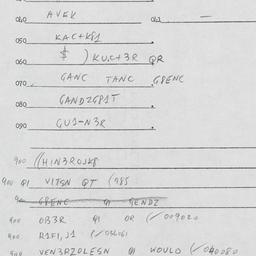 040 AVEK 041 —
050 KAC+K81
060 $ ) KUC+3R QR
070 GANC TANC G8ENC
080 GANDZG81T
090 GU1-N3R
900 ((HIN3ROJK8
900 QI VITSN QT (985
900 G8ENC QI GENDZ
900 OB3R QI OR (✓009020
900 R1F1,J1
900 VEN3RZOLEGN QI WOULD (✓040080